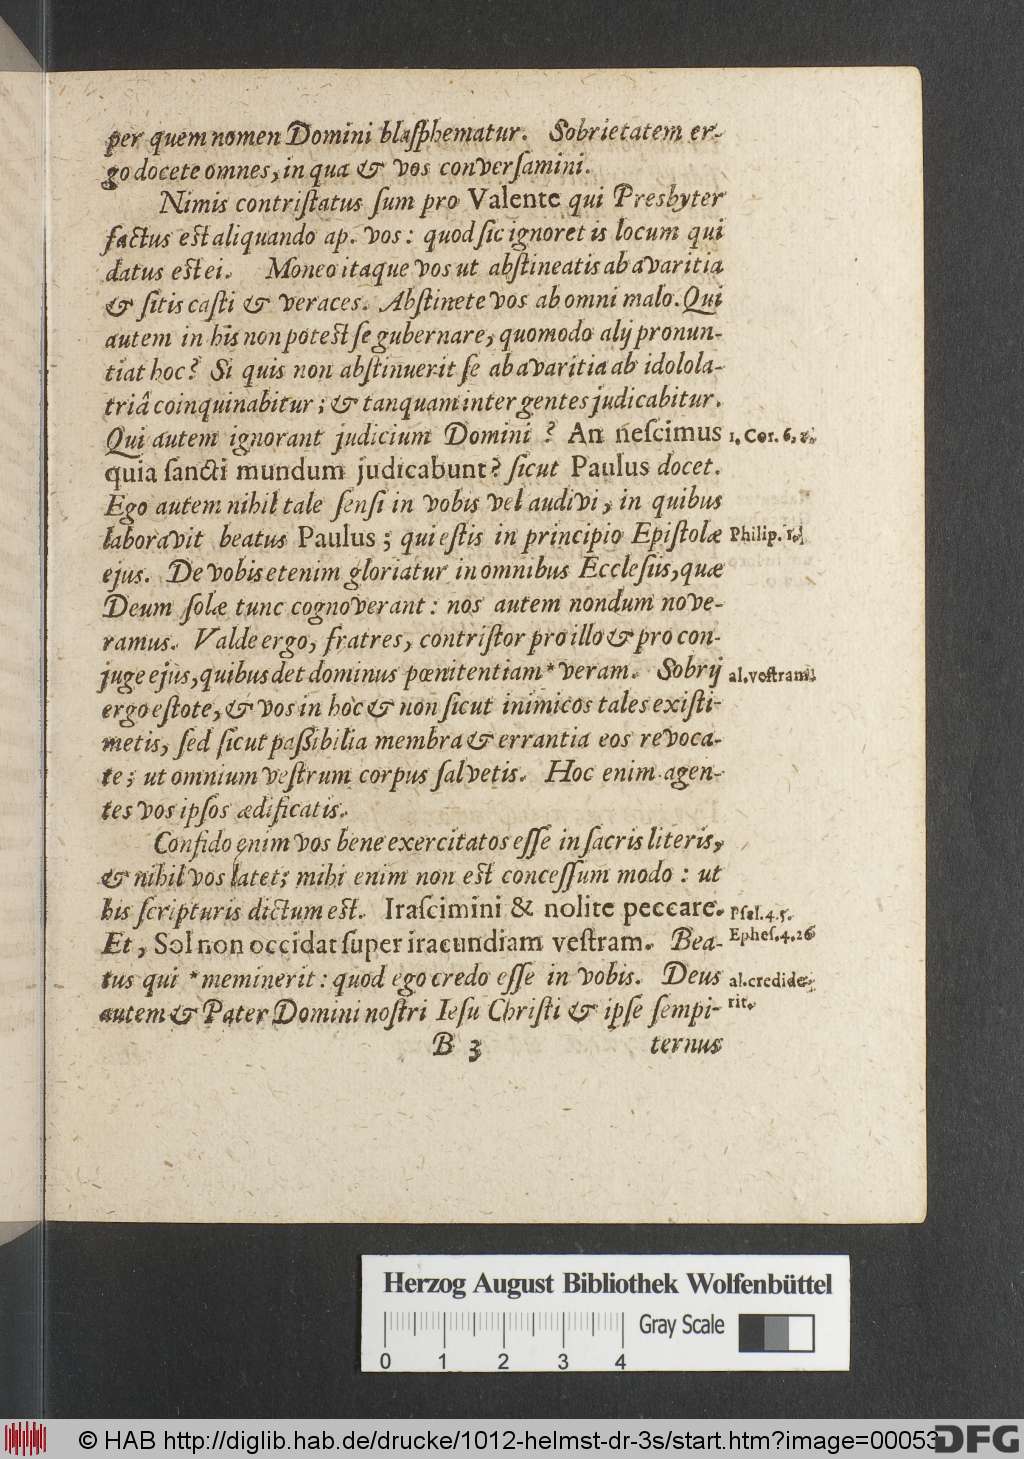 per quem nomen Domini blaſphematur. Sobrietatem er-
go docete omnes, in qua & vos converſamini.
Nimis contriſtatus ſum pro Valente qui Presbyter
factus eſt aliquando ap. vos: quod ſic ignoret is locum qui
datus eſt ei. Moneo itaque vos ut abſtineatis ab avaritia
& ſitis caſti & veraces. Abſtinete vos ab omni malo. Qui
autem in his non poteſt ſe gubernare, quomodo alij pronun-
tiat hoc? Si quis non abſtinuerit ſe ab avaritia ab idolola-
triâ coinquinabitur; & tanquam inter gentes judicabitur.
Qui autem ignorant judicium Domini? An neſcimus 1. Cor. 6, 2.
quia ſancti mundum judicabunt? ſicut Paulus docet.
Ego autem nihil tale ſenſi in vobis vel audivi, in quibus
laboravit beatus Paulus; qui eſtis in principio Epiſtolæ Philip. 1.
ejus. De vobis etenim gloriatur in omnibus Eccleſiis, quæ
Deum ſolæ tunc cognoverant: nos autem nondum nove-
ramus. Valde ergo, fratres, contriſtor pro illo & pro con-
juge ejus, quibus det dominus pœnitentiam * veram. Sobrij al. veſtram
ergo eſtote, & vos in hoc & non ſicut inimicos tales exiſti-
metis, ſed ſicut paſſibilia membra & errantia eos revoca-
te; ut omnium veſtrum corpus ſalvetis. Hoc enim agen-
tes vos ipſos ædificatis.
Confido enim vos bene exercitatos eſſe in ſacris literis,
& nihil vos latet; mihi enim non eſt conceſſum modo: ut
his ſcripturis dictum eſt. Iraſcimini & nolite peccare. Pſal. 4. 5.
Et, Sol non occidat ſuper iracundiam veſtram. Bea- Epheſ. 4. 26
tus qui * meminerit: quod ego credo eſſe in vobis. Deus al. credide-
autem & Pater Domini noſtri Ieſu Chriſti & ipſe ſempi- rit.
B 3 ternus
Herzog August Bibliothek Wolfenbüttel
Gray Scale
0 1 2 3 4
© HAB http://diglib.hab.de/drucke/1012-helmst-dr-3s/start.htm?image=00053
DFG